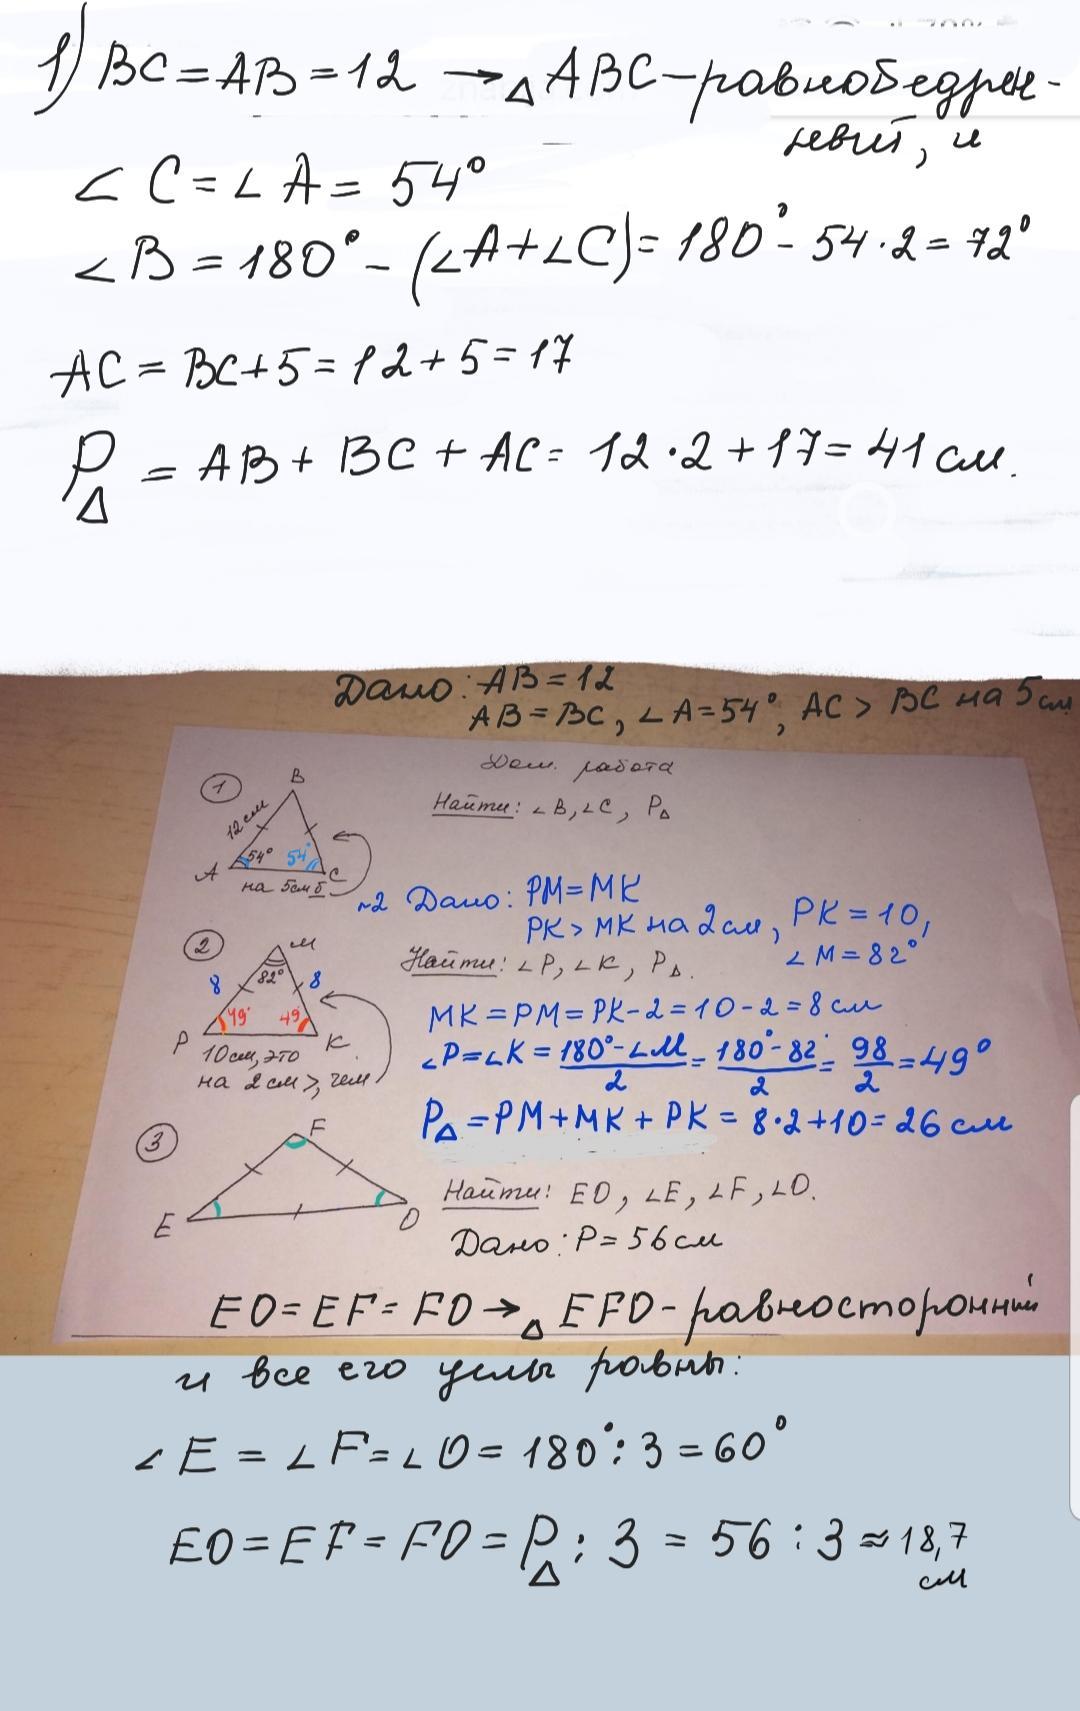 1) BC = AB = 12 → △ ABC – равнобедрен-
ный, и
∠ C = ∠ A = 54°
∠ B = 180° – (∠A+∠C) = 180° – 54·2 = 72°
AC = BC + 5 = 12 + 5 = 17
P△ = AB + BC + AC = 12·2 + 17 = 41 см.
Дано: AB = 12
AB = BC, ∠A = 54°, AC > BC на 5 см
Дом. работа
① B
Найти: ∠B, ∠C, P△
12 см
A 54° 54° C
на 5см б
~2 Дано: PM = MK
PK > MK на 2 см, PK = 10,
∠ M = 82°
② M
Найти: ∠P, ∠K, P△.
8 82° 8
MK = PM = PK – 2 = 10 – 2 = 8 см
P 49° 49° K
10 см, это
на 2 см >, чем
∠P = ∠K = (180° – ∠M)/2 = (180° – 82°)/2 = 98/2 = 49°
P△ = PM + MK + PK = 8·2 + 10 = 26 см
③ F
E O
Найти: EO, ∠E, ∠F, ∠O.
Дано: P = 56 см
EO = EF = FO → △ EFO – равносторонний
и все его углы равны:
∠ E = ∠ F = ∠ O = 180° : 3 = 60°
EO = EF = FO = P△ : 3 = 56 : 3 ≈ 18,7
см